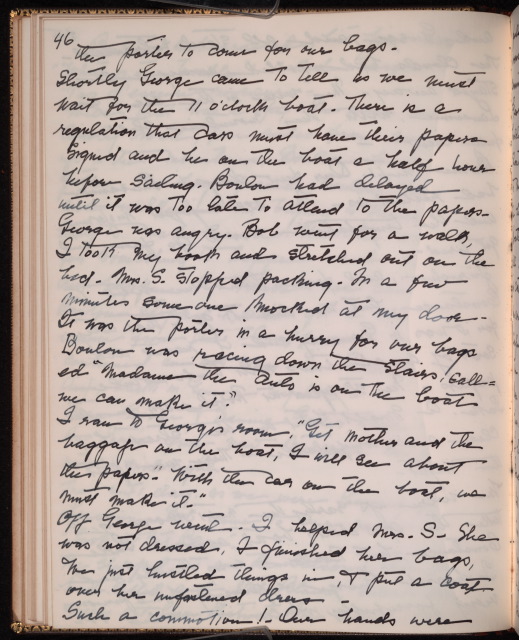 46
the porter to come for our bags.
Shortly George came to tell us we must
wait for the 11 o'clock boat. There is a
regulation that cars must have their papers
signed and be on the boat a half hour
before sailing. Boulou had delayed
until it was too late to attend to the papers.
George was angry. Bob went for a walk,
I took my book and stretched out on the
bed. Mrs. S. stopped packing. In a few
minutes someone knocked at my door.
It was the porter in a hurry for our bags
Boulou was racing down the stairs, call=
ed "Madame the auto is on the boat
we can make it."
I ran to George's room, "Get Mother and the
baggage on the boat, I will see about
the papers." With the car on the boat, we
must make it."
Off George went. I helped Mrs. S. She
was not dressed, I finished her bags,
We just hustled things in, I put a coat
over her unfastened dress
Such a commotion! Our hands were